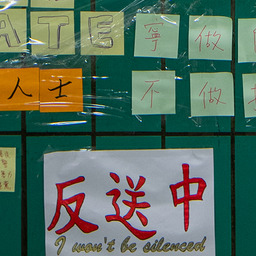 ATE 寧 做
人 士 不 做
反送中
I won't be silenced